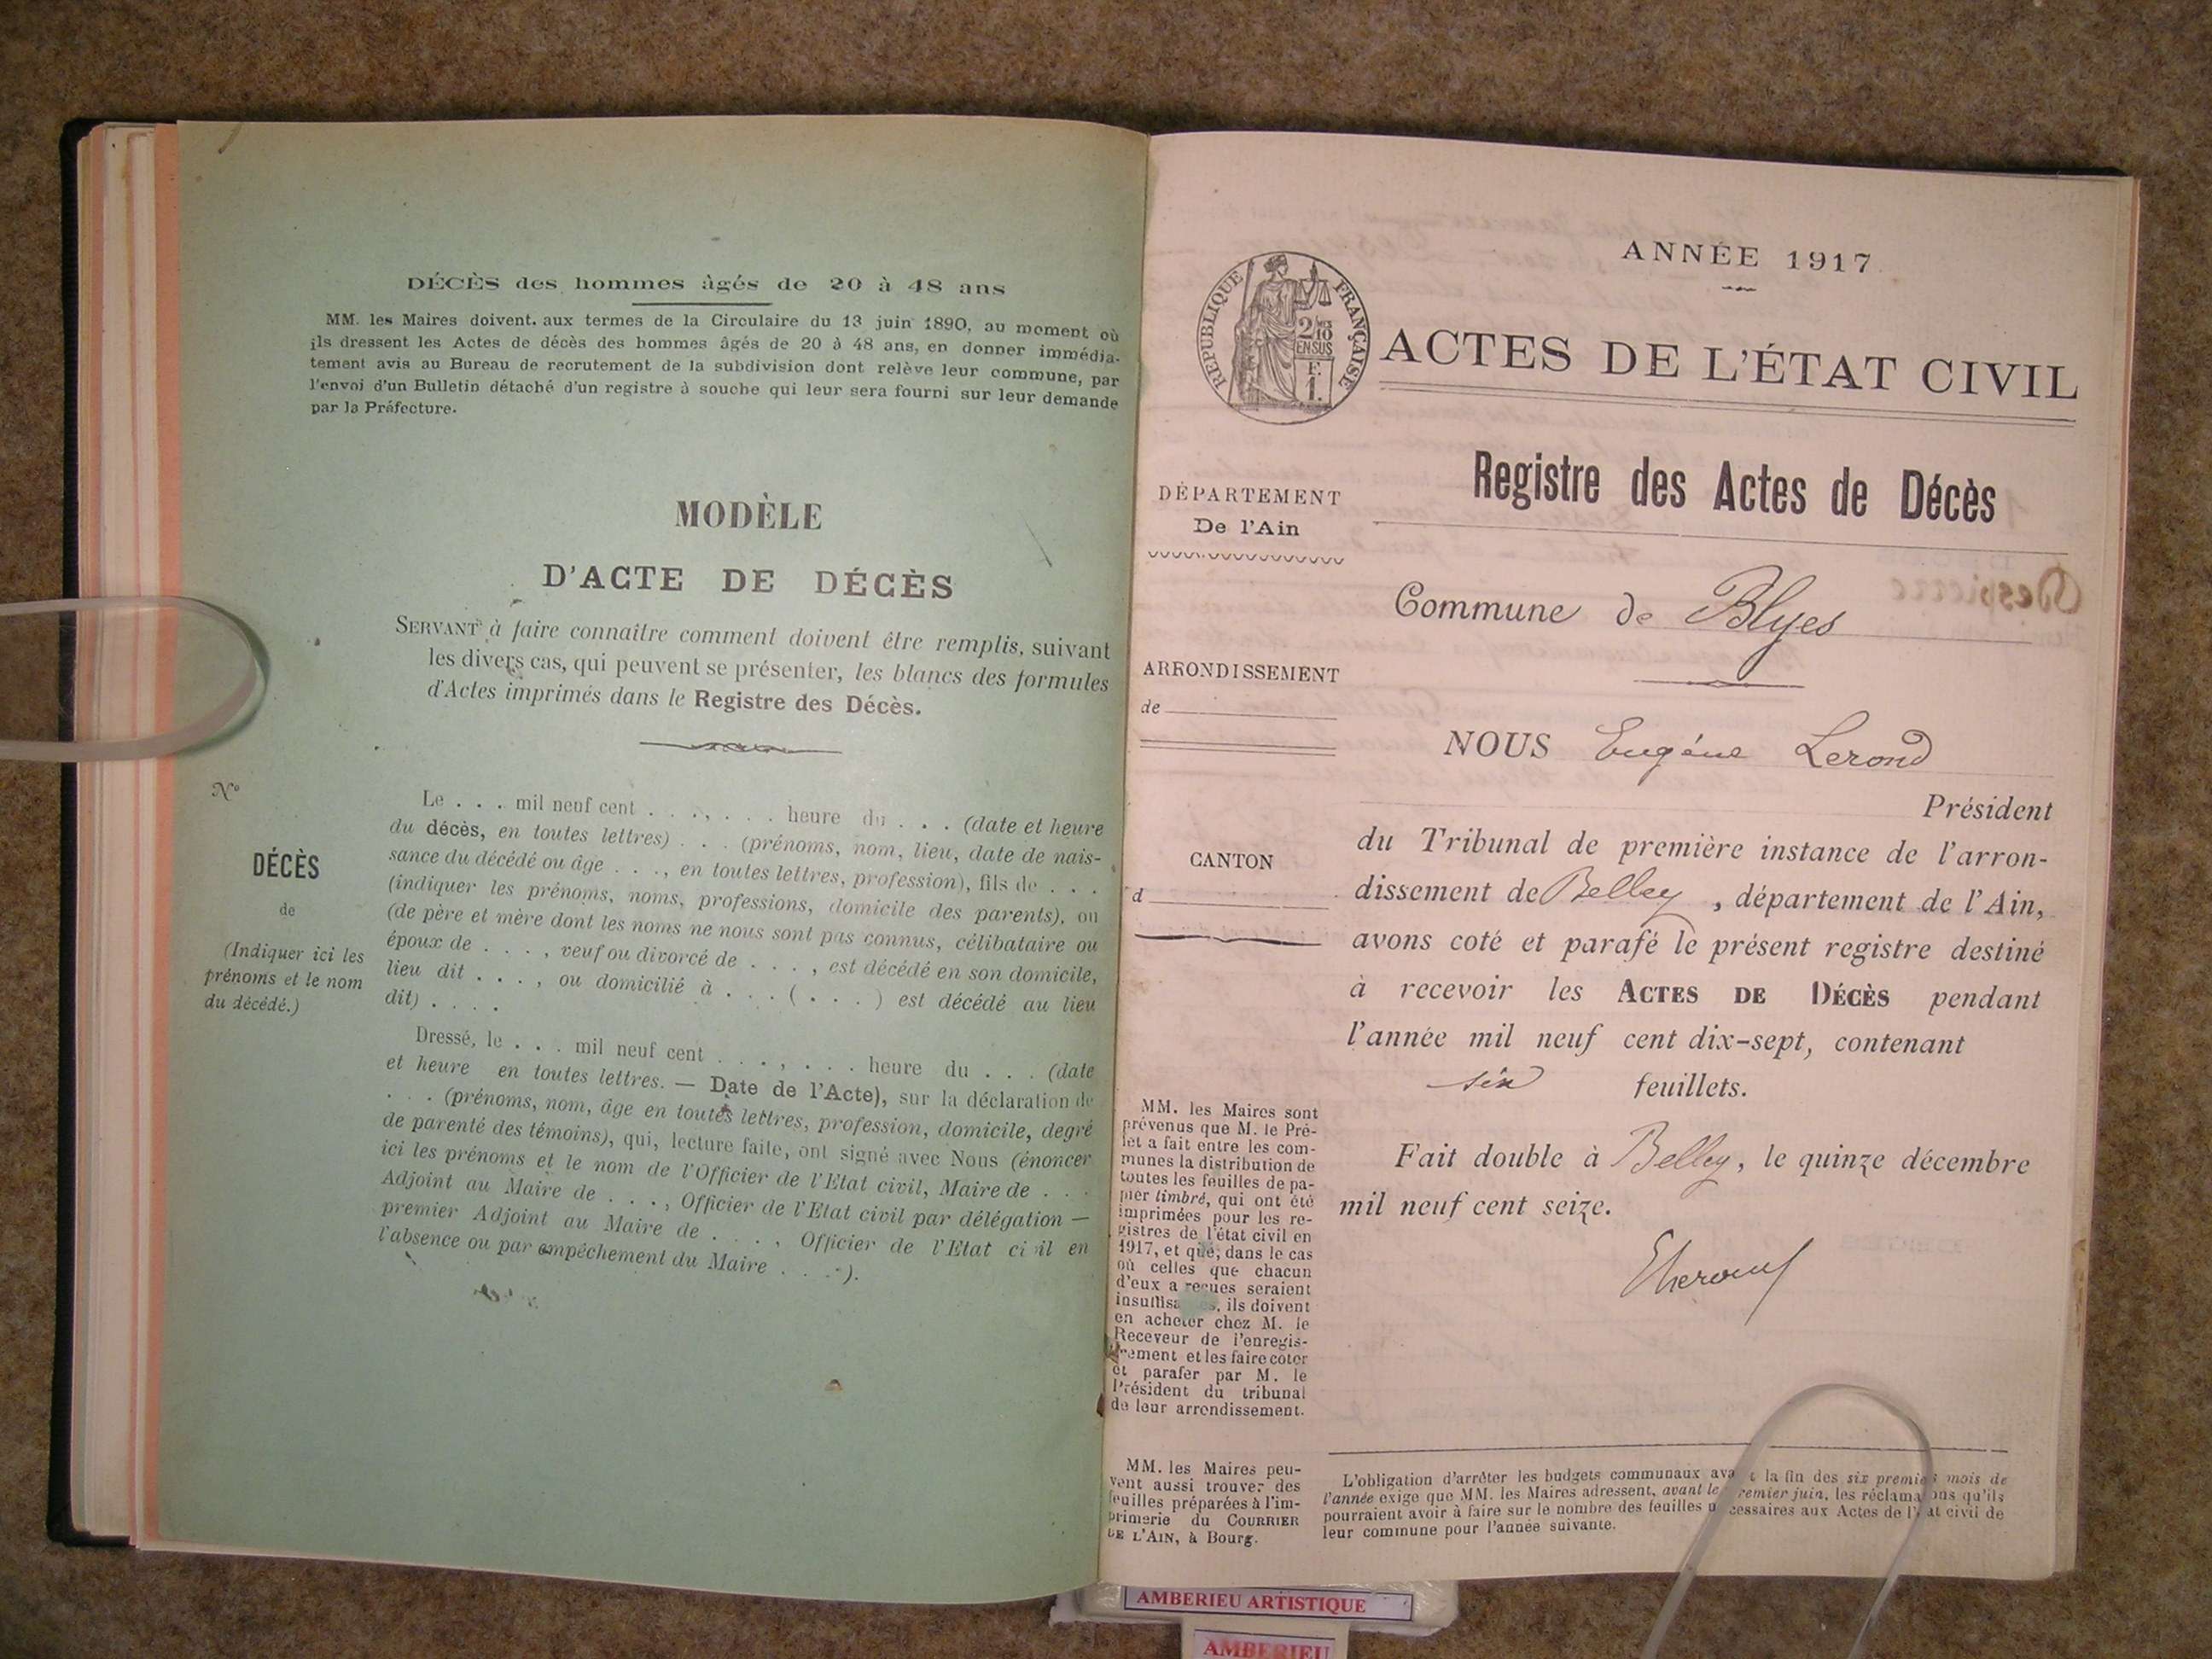 DÉCÈS des hommes âgés de 20 à 48 ans
MM. les Maires doivent. aux termes de la Circulaire du 13 juin 1890, au moment où
ils dressent les Actes de décès des hommes âgés de 20 à 48 ans, en donner immédia-
tement avis au Bureau de recrutement de la subdivision dont relève leur commune, par
l'envoi d'un Bulletin détaché d'un registre à souche qui leur sera fourni sur leur demande
par la Préfecture.
MODÈLE
D'ACTE DE DÉCÈS
SERVANT à faire connaître comment doivent être remplis, suivant
les divers cas, qui peuvent se présenter, les blancs des formules
d'Actes imprimés dans le Registre des Décès.
N°
DÉCÈS
de
(Indiquer ici les
prénoms et le nom
du décédé.)
Le . . . mil neuf cent . . . , . . . heure du . . . (date et heure
du décès, en toutes lettres) . . . (prénoms, nom, lieu, date de nais-
sance du décédé ou âge . . . , en toutes lettres, profession), fils de . . .
(indiquer les prénoms, noms, professions, domicile des parents), ou
(de père et mère dont les noms ne nous sont pas connus, célibataire ou
époux de . . . , veuf ou divorcé de . . . , est décédé en son domicile,
lieu dit . . . , ou domicilié à . . . ( . . . ) est décédé au lieu
dit) . . . .
Dressé, le . . . mil neuf cent . . . , . . . heure du . . . (date
et heure en toutes lettres. — Date de l'Acte), sur la déclaration de
. . . (prénoms, nom, âge en toutes lettres, profession, domicile, degré
de parenté des témoins), qui, lecture faite, ont signé avec Nous (énoncer
ici les prénoms et le nom de l'Officier de l'Etat civil, Maire de . . .
Adjoint au Maire de . . . , Officier de l'Etat civil par délégation —
premier Adjoint au Maire de . . . , Officier de l'Etat civil en
l'absence ou par empêchement du Maire . . . ).
ANNÉE 1917
RÉPUBLIQUE FRANÇAISE
2/10
EN SUS
F.
1.
ACTES DE L'ÉTAT CIVIL
Registre des Actes de Décès
DÉPARTEMENT
De l'Ain
Commune de Blyes
ARRONDISSEMENT
de
CANTON
d
NOUS Eugène Lerond
Président
du Tribunal de première instance de l'arron-
dissement de Belley, département de l'Ain,
avons coté et parafé le présent registre destiné
à recevoir les ACTES DE DÉCÈS pendant
l'année mil neuf cent dix-sept, contenant
six feuillets.
Fait double à Belley, le quinze décembre
mil neuf cent seize.
MM. les Maires sont
prévenus que M. le Pré-
fet a fait entre les com-
munes la distribution de
toutes les feuilles de pa-
pier timbré, qui ont été
imprimées pour les re-
gistres de l'état civil en
1917, et que, dans le cas
où celles que chacun
d'eux a reçues seraient
insuffisantes, ils doivent
en acheter chez M. le
Receveur de l'enregis-
trement et les faire coter
et parafer par M. le
Président du tribunal
de leur arrondissement.
MM. les Maires peu-
vent aussi trouver des
feuilles préparées à l'im-
primerie du COURRIER
DE L'AIN, à Bourg.
L'obligation d'arrêter les budgets communaux avant la fin des six premiers mois de
l'année exige que MM. les Maires adressent, avant le premier juin, les réclamations qu'ils
pourraient avoir à faire sur le nombre des feuilles nécessaires aux Actes de l'État civil de
leur commune pour l'année suivante.
AMBERIEU ARTISTIQUE
AMBERIEU